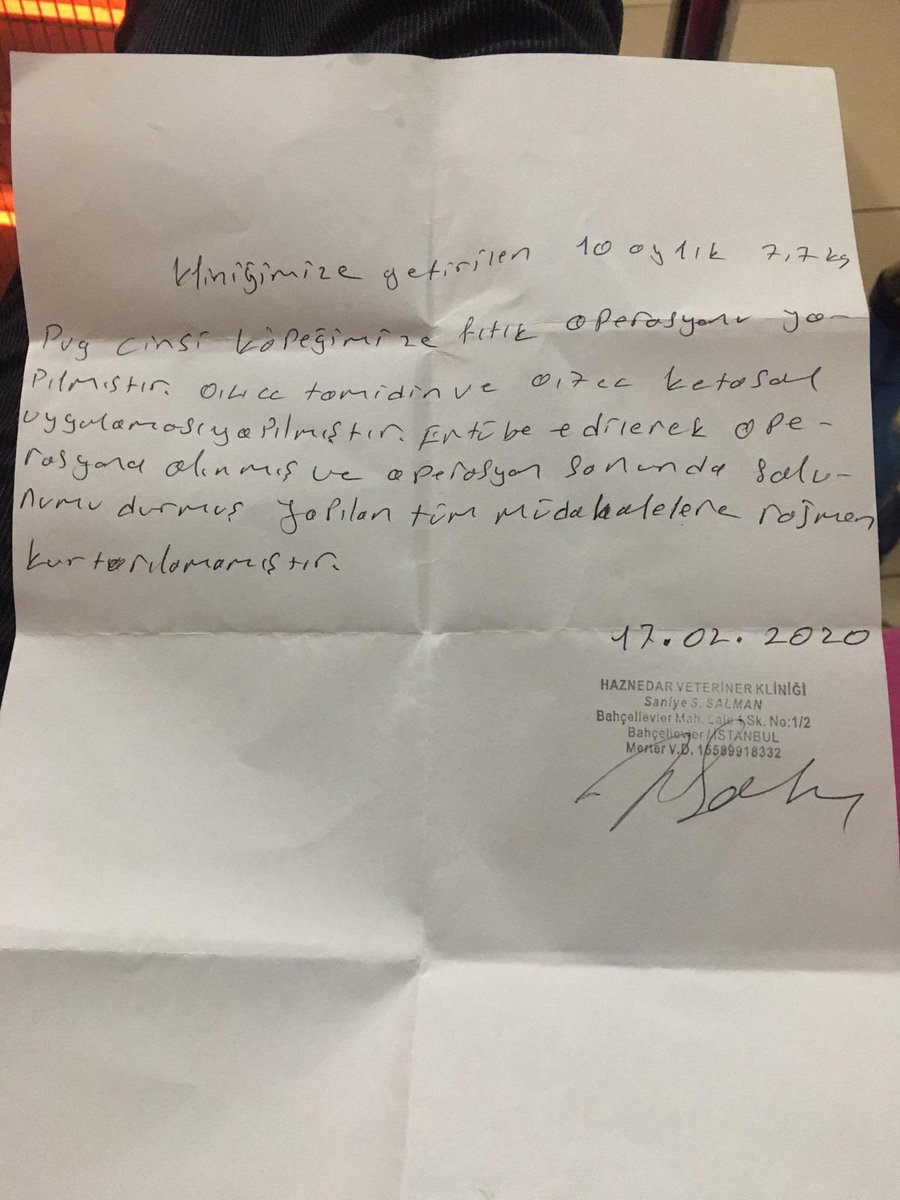 Kliniğimize getirilen 10 aylık 7,7 kg
Pug cinsi köpeğimize fıtık operasyonu ya-
pılmıştır. tomidin ve 0,7 cc ketasol
uygulaması yapılmıştır. Entübe edilerek ope-
rasyona alınmış ve operasyon sonunda solu-
numu durmuş yapılan tüm müdahalelere rağmen
kurtarılamamıştır.
17.02.2020
HAZNEDAR VETERİNER KLİNİĞİ
Saniye S. SALMAN
Bahçelievler Mah. Lale Sk. No:1/2
Bahçelievler / İSTANBUL
Merter V.D. 15589918332